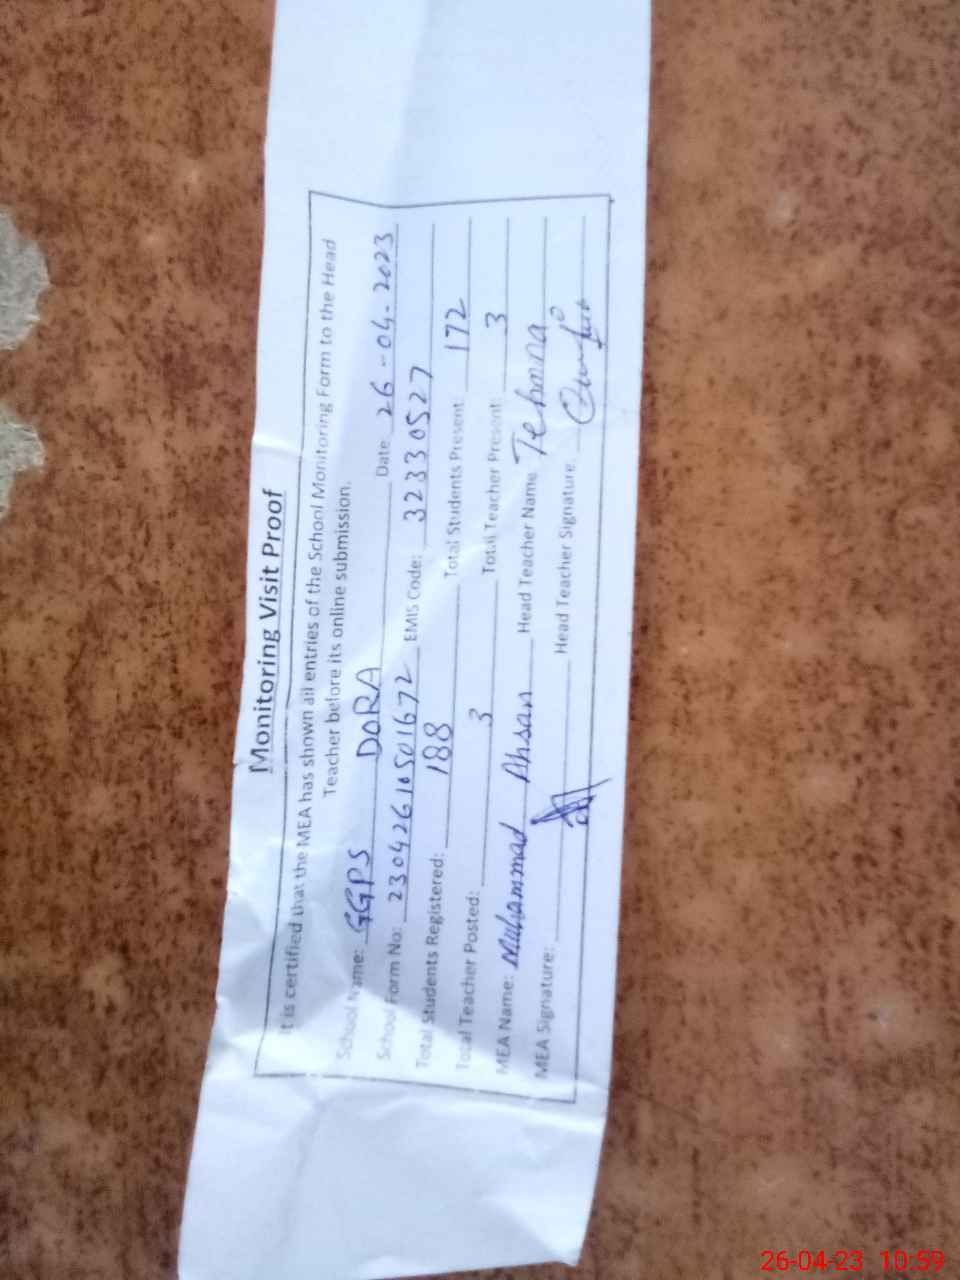 Monitoring Visit Proof
It is certified that the MEA has shown all entries of the School Monitoring Form to the Head
Teacher before its online submission.
School Name: GGPS DORA Date 26-04-2023
School Form No: 23042610501672 EMIS Code: 32330527
Total Students Registered: 188 Total Students Present: 172
Total Teacher Posted: 3 Total Teacher Present: 3
MEA Name: Muhammad Ahsan Head Teacher Name
MEA Signature: Head Teacher Signature:
26-04-23 10:59